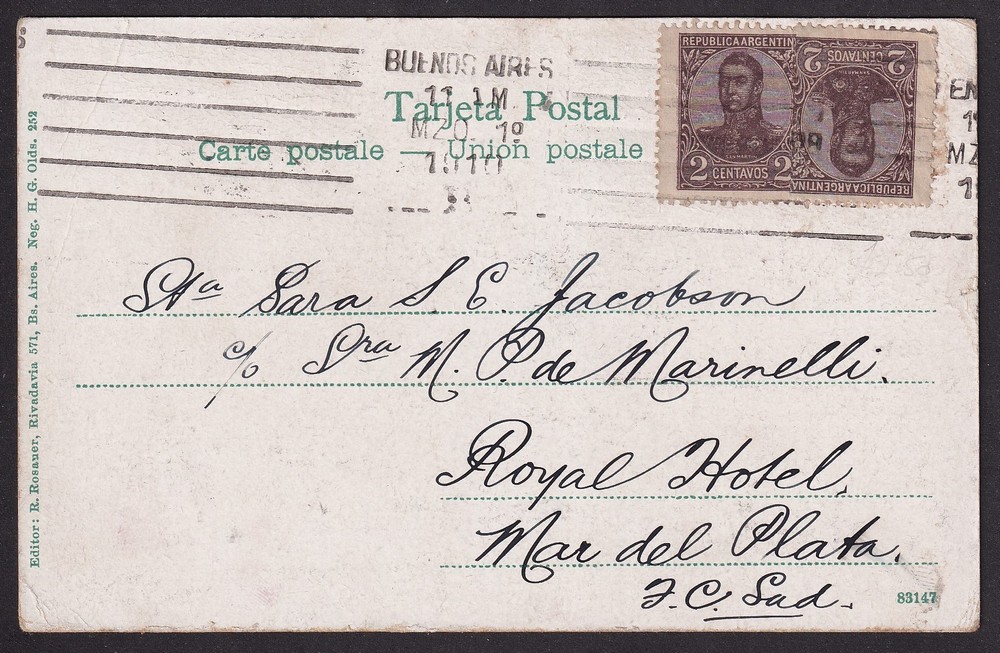 BUENOS AIRES
11 1M
MZO 1º
1910
Tarjeta Postal
Carte postale — Union postale
REPUBLICA ARGENTIN
SAN MARTIN
2 CENTAVOS 2
2 CENTAVOS 2
SAN MARTIN
REPUBLICA ARGENTINA
EN
MZ
Sta Sara S E Jacobson
c/o Sra M. P. de Marinelli.
Royal Hotel.
Mar del Plata.
F. C. Sud.
83147
Editor: R. Rosauer, Rivadavia 571, Bs. Aires. Neg. H. G. Olds. 252